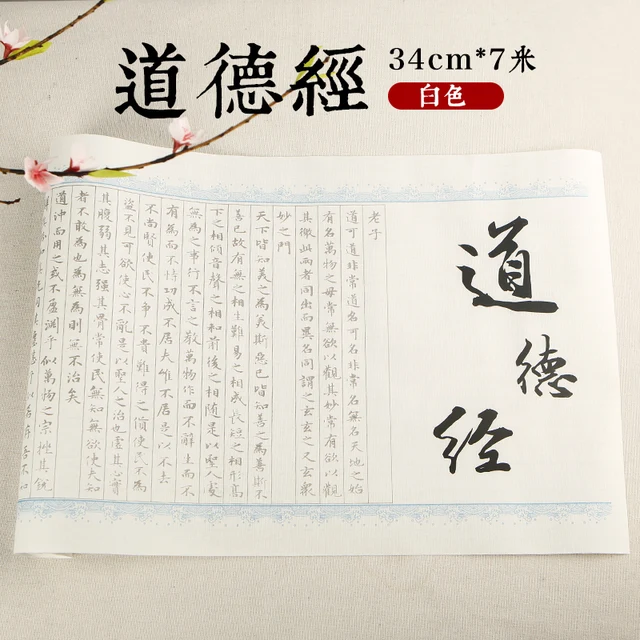 道德經
34cm*7米
白色
道德经
老子
道可道非常道名可名非常名無名天地之始
有名萬物之母常無欲以觀其妙常有欲以觀
其徼此兩者同出而異名同謂之玄玄之又玄衆
妙之門
天下皆知美之為美斯惡已皆知善之為善斯不
善已故有無之相生難易之相成長短之相形高
下之相傾音聲之相和前後之相隨是以聖人處
無為之事行不言之教萬物作而不辭生而不
有為而不恃功成不居夫唯不居是以不去
不尚賢使民不爭不貴難得之貨使民不為
盜不見可欲使心不亂是以聖人之治也虛其心實
其腹弱其志強其骨常使民無知無欲使夫知
者不敢為也為無為則無不治矣
道沖而用之或不盈淵乎似萬物之宗挫其銳